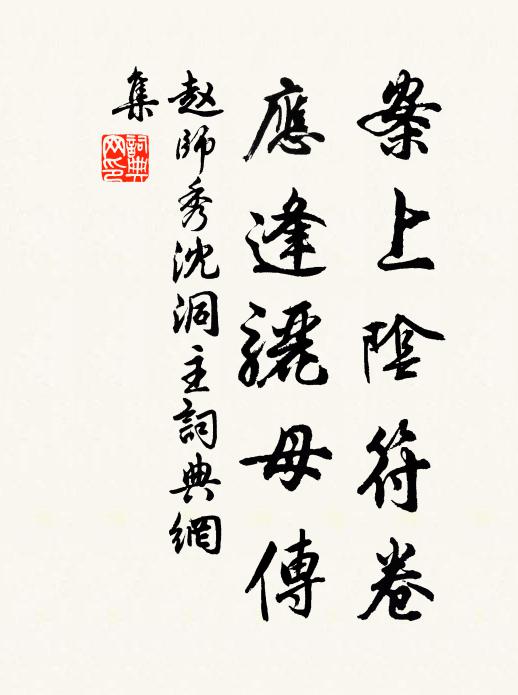 案上陰符卷
應逢驪母傳
赵師秀沈洞主詞典網
集
詞典網印